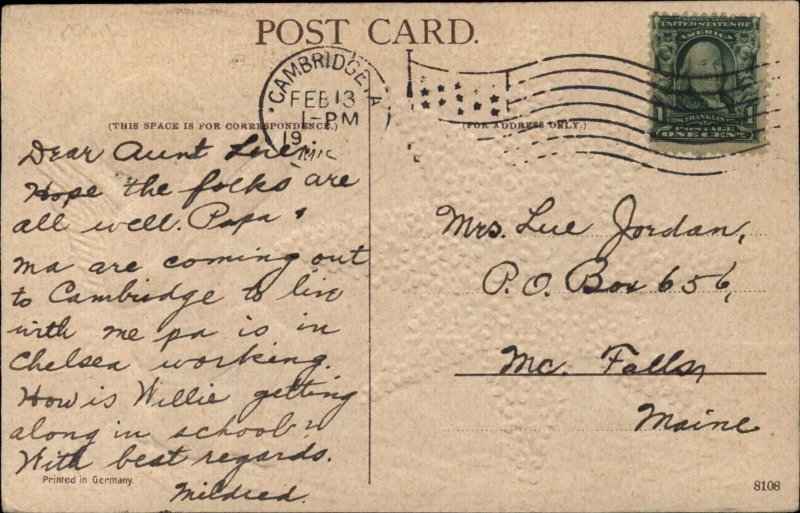 POST CARD.
CAMBRIDGE
FEB 13
1-PM
19
UNITED STATES OF
AMERICA
1
FRANKLIN
POSTAGE
ONE CENT
(THIS SPACE IS FOR CORRESPONDENCE.)
(FOR ADDRESS ONLY.)
Dear Aunt Lue:
Hope the folks are
all well. Papa &
Ma are coming out
to Cambridge to live
with me pa is in
Chelsea working.
How is Willie getting
along in school?
With best regards.
Mildred.
Mrs. Lue Jordan,
P.O. Box 656,
Mc. Falls,
Maine
Printed in Germany.
8108